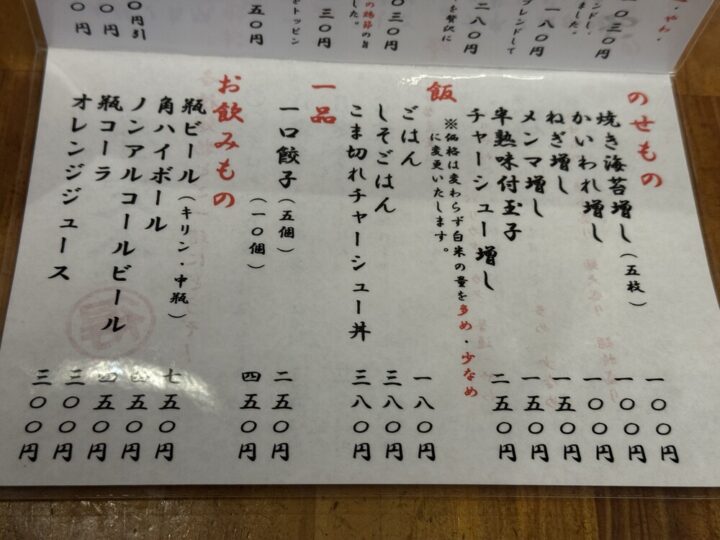 〇三〇円
ンドし、
ました。
一八〇円
ンドして
二八〇円
を贅沢に
〇三〇円
した。
三〇円
をトッピン
五〇円
〇円引
〇円
のせもの
焼き海苔増し(五枚) 一〇〇円
かいわれ増し 一〇〇円
ねぎ増し 一〇〇円
メンマ増し 一五〇円
半熟味付玉子 一五〇円
チャーシュー増し 二五〇円
飯
※価格は変わらず白米の量を多め・少なめ
に変更いたします。
ごはん 一八〇円
しそごはん 三八〇円
こま切れチャーシュー丼 三八〇円
一品
一口餃子(五個) 二五〇円
(一〇個) 四五〇円
お飲みもの
瓶ビール(キリン・中瓶) 七五〇円
角ハイボール 四五〇円
ノンアルコールビール 四五〇円
瓶コーラ 三〇〇円
オレンジジュース 三〇〇円